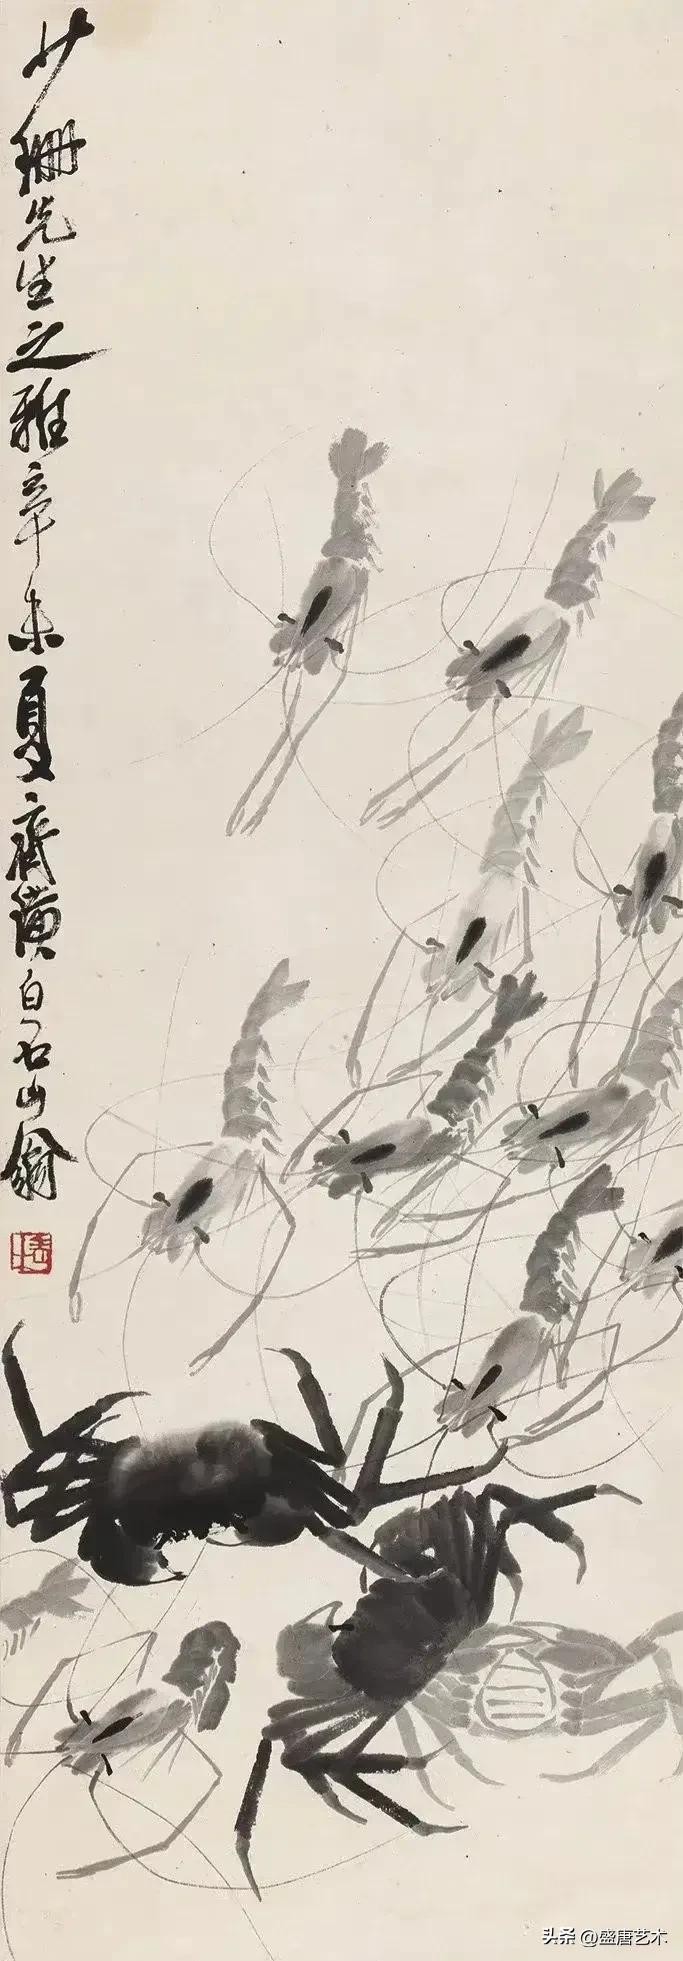 少珊先生之雅辛未夏齐璜白石山翁
头条 @盛唐艺术